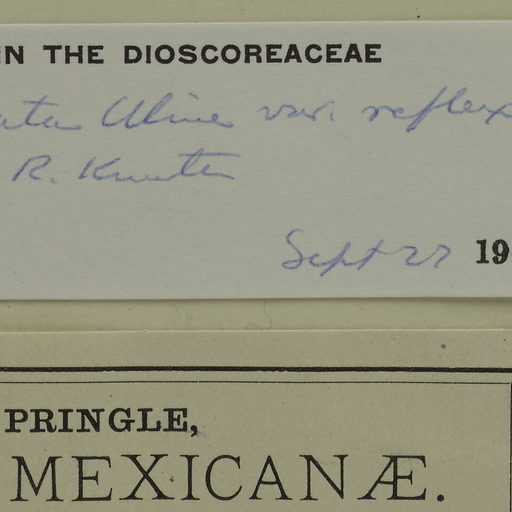 IN THE DIOSCOREACEAE
Uline var. reflex
R. Knuth
Sept 27 19
PRINGLE,
MEXICANÆ.